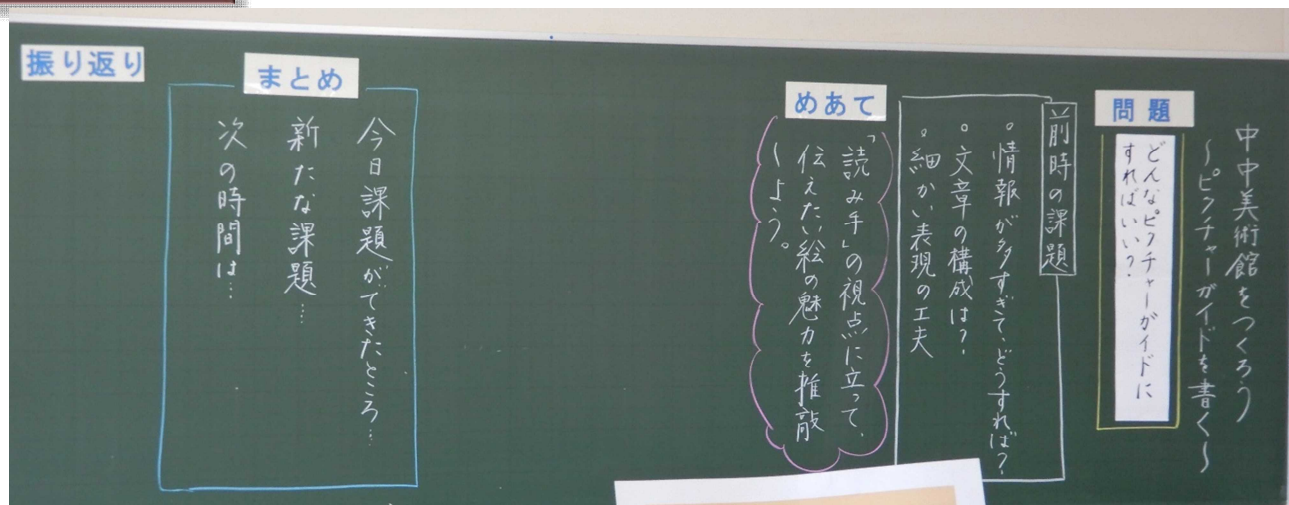 中中美術館をつくろう
〜ピクチャーガイドを書く〜
問題
どんなピクチャーガイドに
すればいい？
前時の課題
・情報が多すぎて、どうすれば？
・文章の構成は？
・細かい表現の工夫
めあて
「読み手」の視点に立って、
伝えたい絵の魅力を推敲
しよう。
まとめ
今日課題ができたところ…
新たな課題…
次の時間は…
振り返り